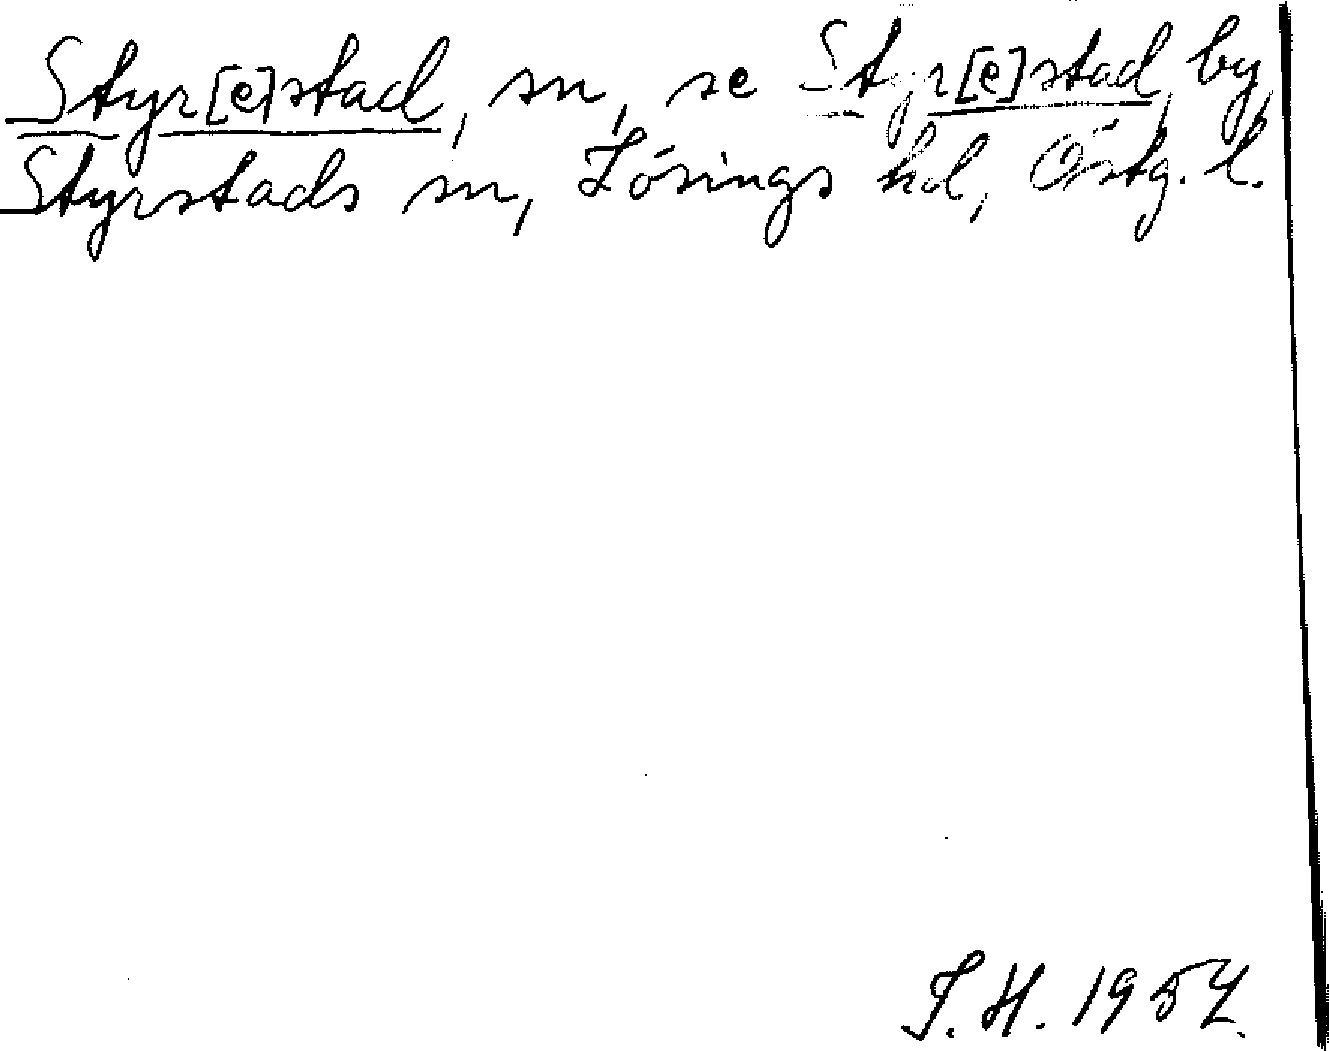 Styr[e]stad, sn, se Styr[e]stad, by,
Styrstads sn, Lösings hd, Östg. l.
J.H. 1957.